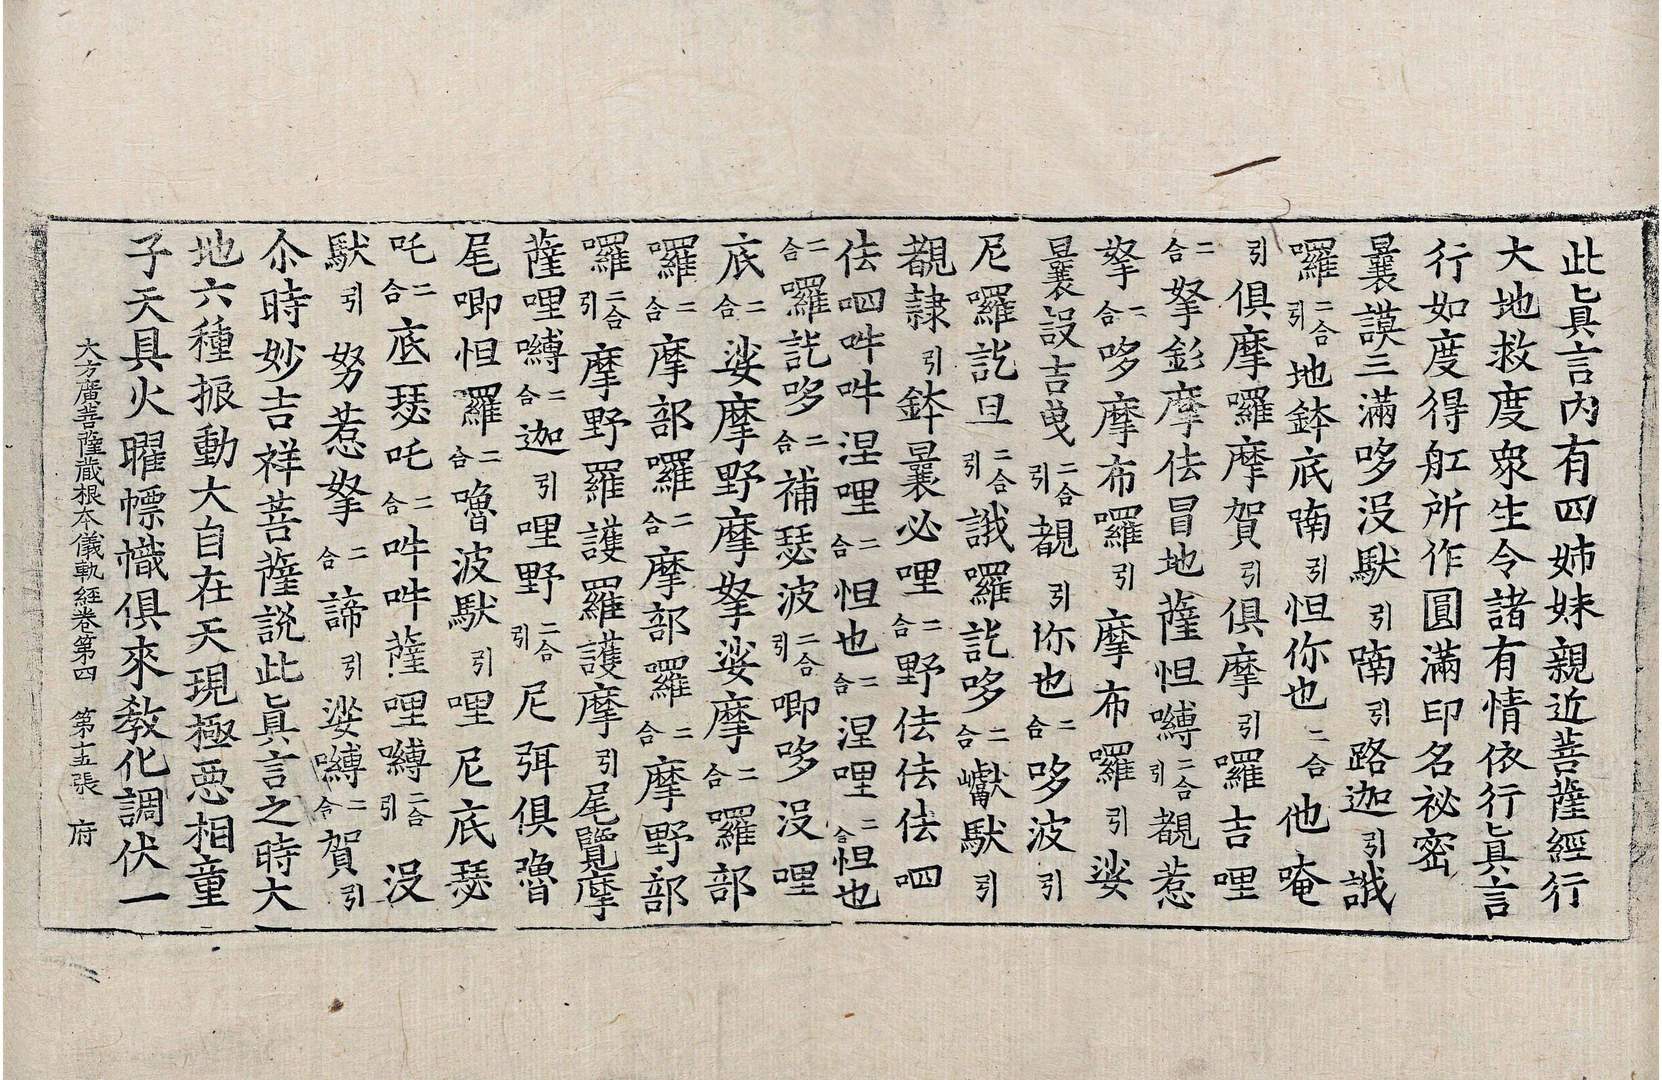 此眞言内有四姉妹親近菩薩經行
大地救度衆生令諸有情依行眞言
行如度得舡所作圓滿印名祕密
曩謨三滿哆没馱引喃引路迦引誐
囉二合引地鉢底喃引怛你也二合他唵
引俱摩囉摩賀引俱摩引囉吉哩
二合拏彭摩佉冒地薩怛嚩二合引覩惹
拏二合哆摩布囉引摩布囉引娑
曩設吉曳二合引覩引你也二合哆波引
尼囉訖旦二合引誐囉訖哆二合巘馱引
覩隷引鉢曩必哩二合野佉佉佉呬
佉呬吽吽涅哩二合怛也二合涅哩二合怛也
二合囉訖哆二合補瑟波二合引唧哆没哩
底二合娑摩野摩拏娑摩二合囉部
囉二合摩部囉二合摩部囉二合摩野部
囉二合引摩野羅護羅護摩引尾覽摩
薩哩嚩二合迦引哩野二合引尼弭俱嚕
尾唧怛羅二合嚕波馱引哩尼底瑟
吒二合底瑟吒二合吽吽薩哩嚩二合引没
馱引努惹拏二合諦引娑嚩二合賀引
尒時妙吉祥菩薩說此眞言之時大
地六種振動大自在天現極惡相童
子天具火曜幖幟俱來教化調伏一
大方廣菩薩藏根本儀軌經卷第四 第十五張 府